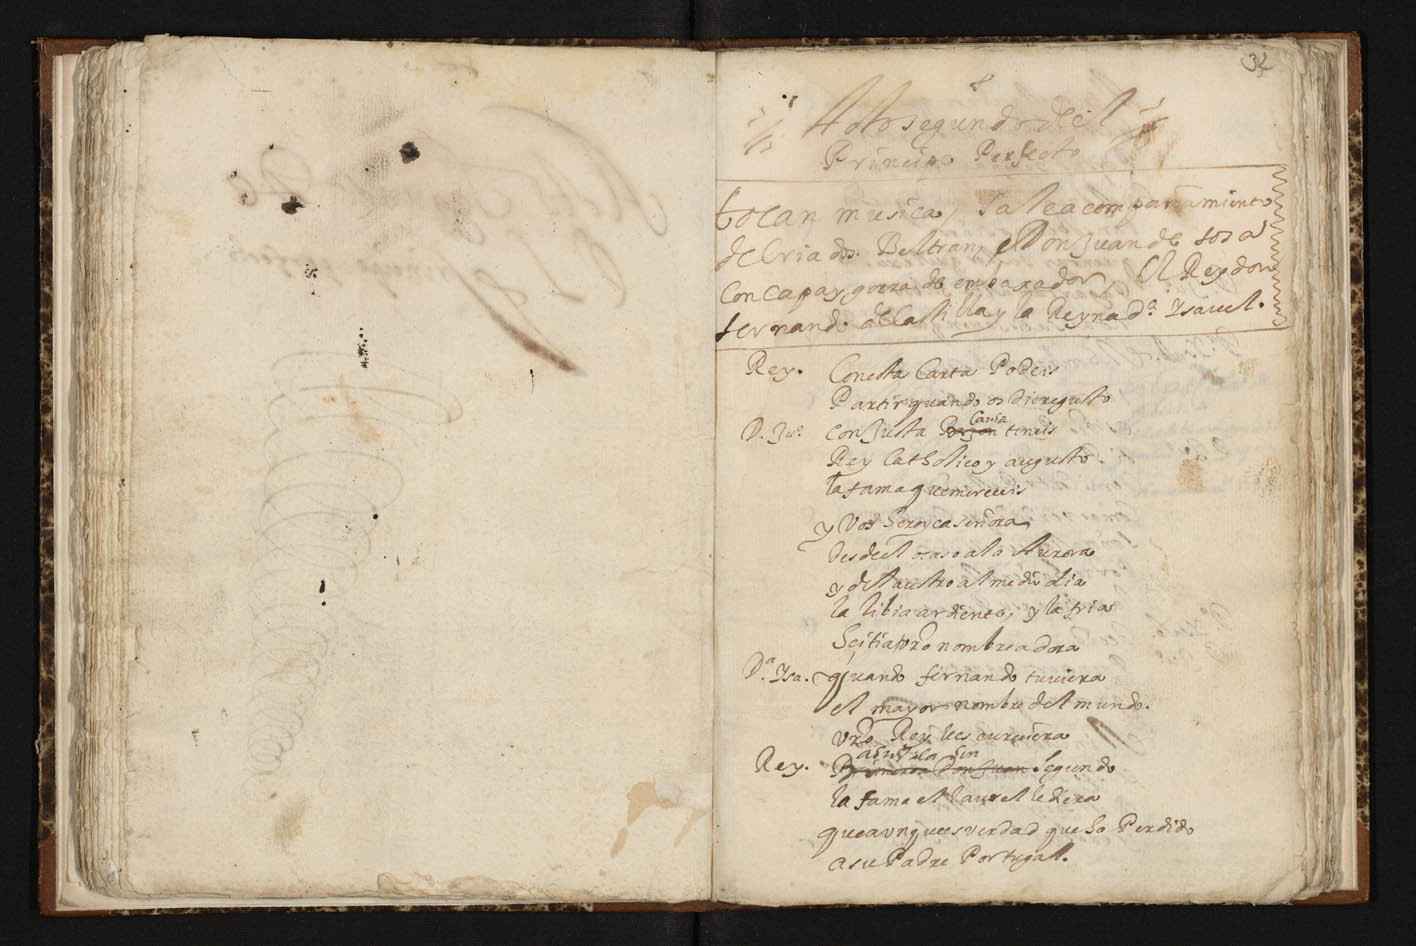 32
Acto segundo del
Principe Perfecto
tocan musica, Sale acompañamiento
de Criados. Beltran, y Don Juan de sosa
Con capa y gorra de enbaxador, El Rey don
fernando de Castilla y la Reyna d.ª Ysauel.
Rey. Con esta Carta Podeis
Partir quando os diere gusto
D. Juº. con Justa Razon Causa teneis
Rey Catholico y augusto
la fama que mereceis
y Vos heroyca señora
desde el ocaso a la Aurora
y del austro al medio dia
la libia ardiente, y la fria
Scitia vrō nombre adora
D.ª Ysa. quando fernando tuuiera
el mayor nombre del mundo.
vrō Rey le escureciera
Rey. Don Juan sin segundo
la fama el laurel le diera
que aunque es verdad que ha Perdido
a su Padre Portugal.